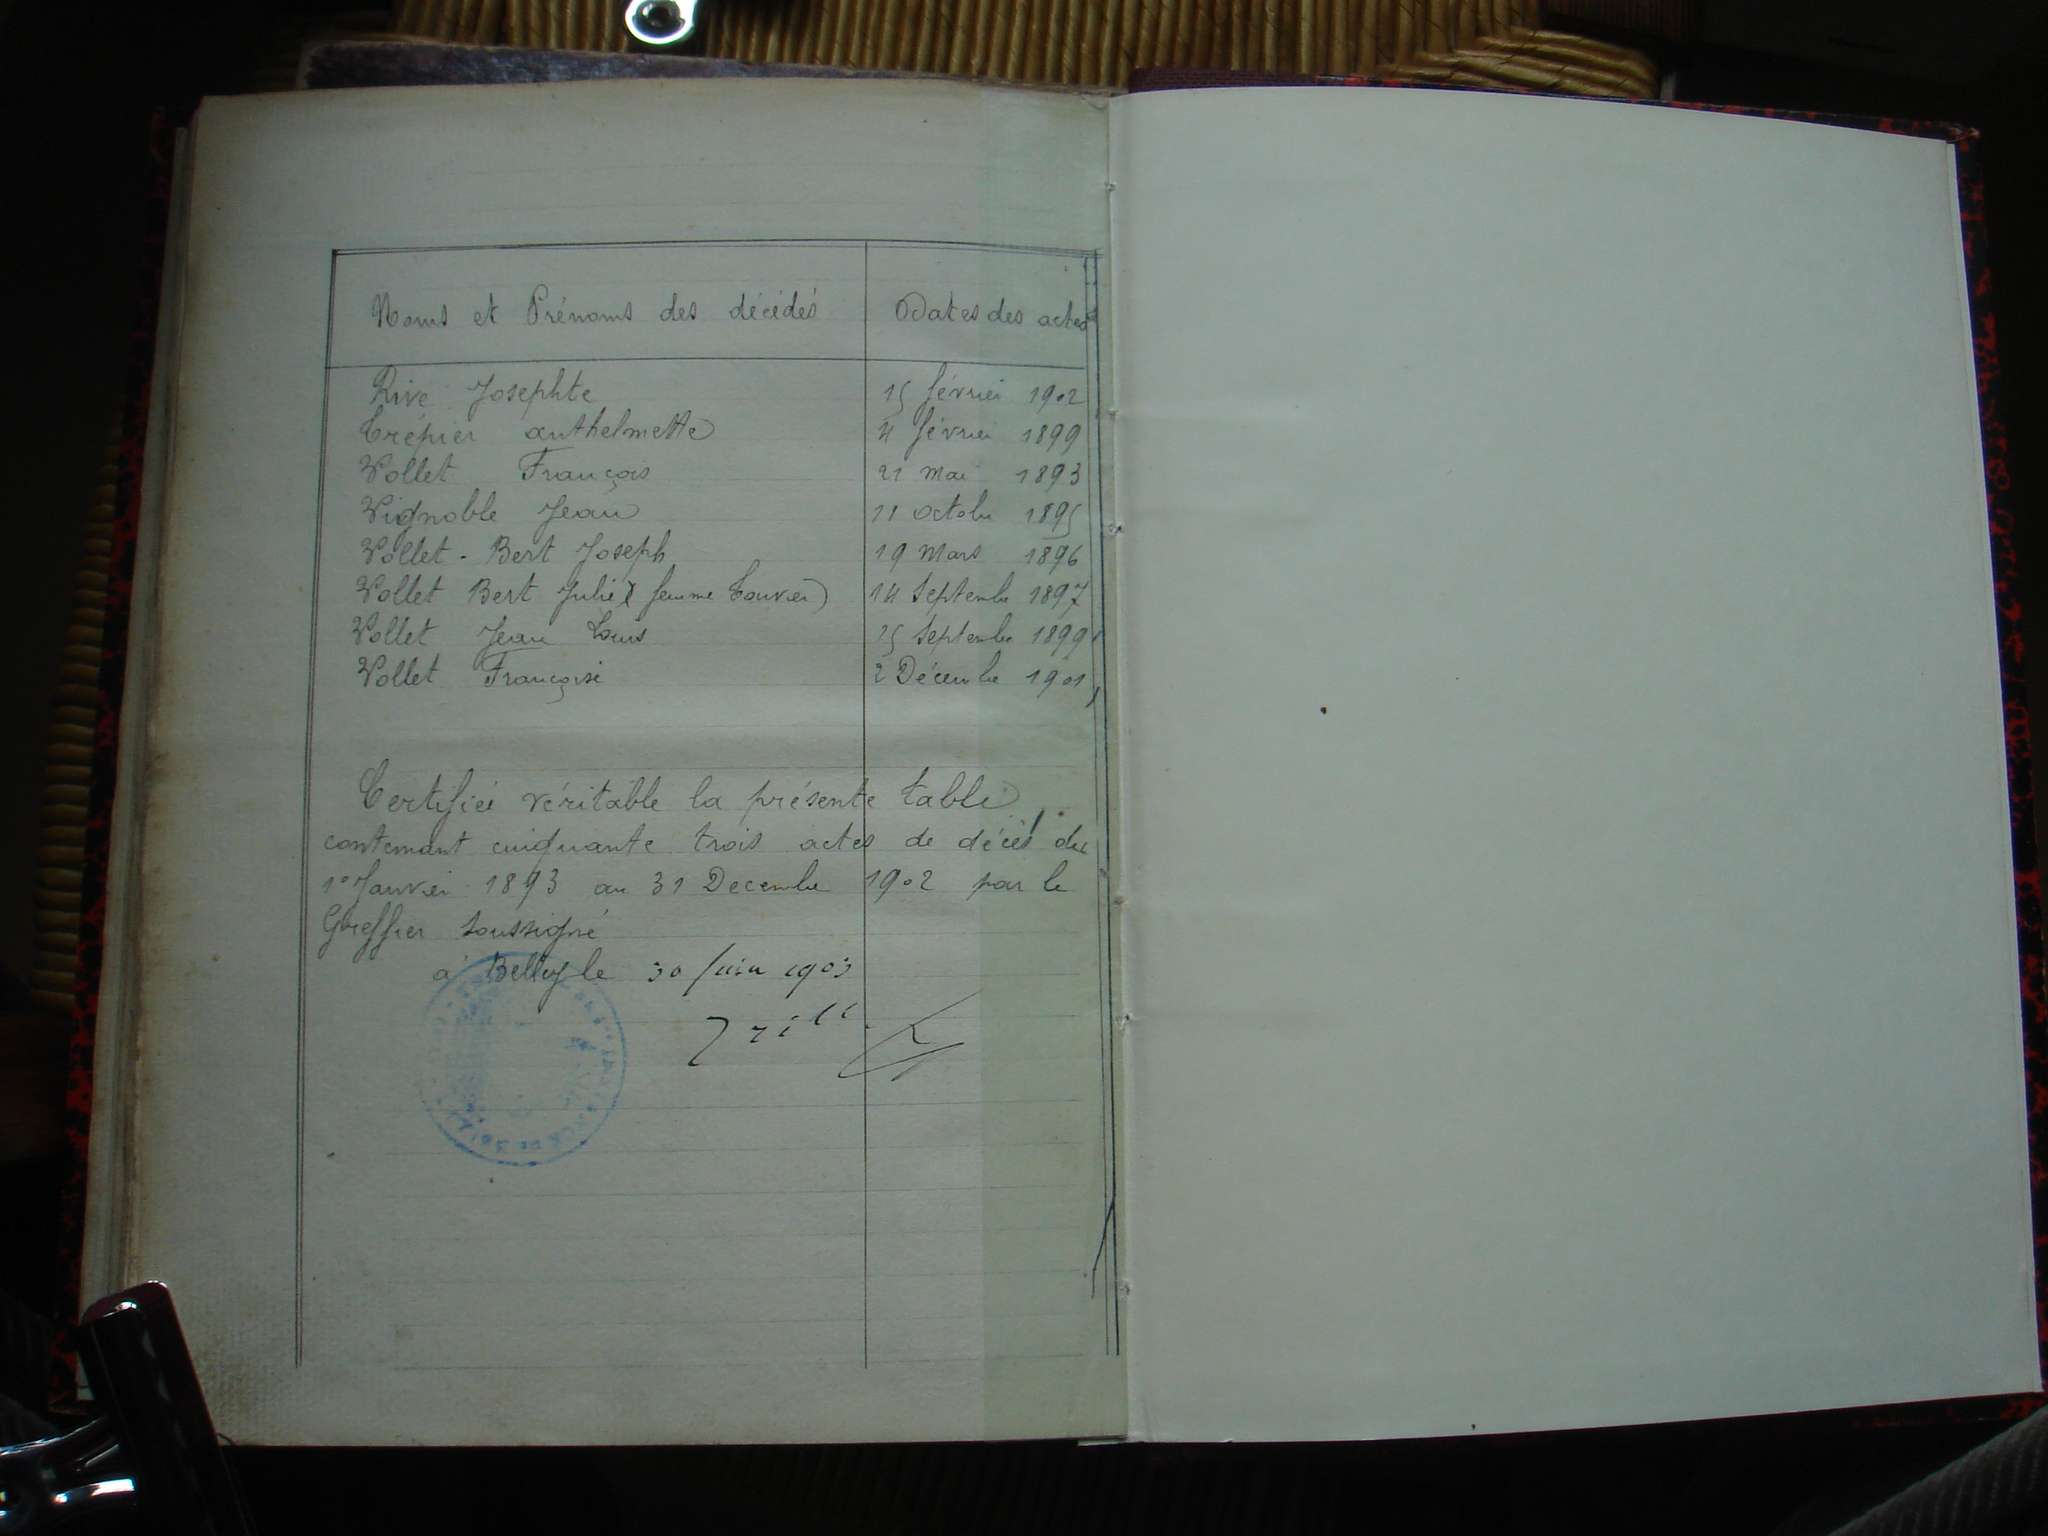 Noms et Prénoms des décédés Dates des actes
Rive Josephte 15 février 1902
Trépier Anthelmette 4 février 1899
Vollet François 21 mai 1893
Vignoble Jean 11 octobre 1895
Vollet-Bert Joseph 19 mars 1896
Vollet Bert Julie (femme Touvier) 14 Septembre 1897
Vollet Jean Louis 25 Septembre 1899
Vollet Françoise 2 Décembre 1901
Certifiée véritable la présente table
contenant cinquante trois actes de décès du
1er Janvier 1893 au 31 Decembre 1902 par le
Greffier soussigné
à Belley le 30 Juin 1903